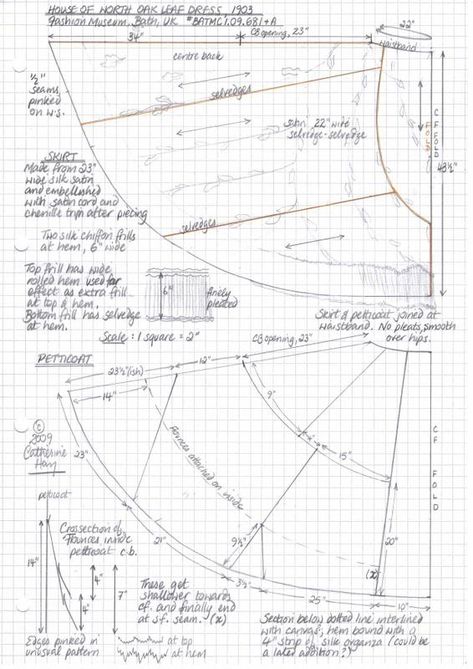 HOUSE OF WORTH OAK LEAF DRESS, 1903
Fashion Museum, Bath, UK #BATMC 1.09.681+A
34"
CB opening, 23"
22"
waistband
centre back
1/2"
seams,
pinked
on w.s.
selvedges
satin 22" wide
selvedge-selvedge
CF FOLD
43 1/2"
SKIRT
Made from 23"
wide silk satin
and embellished
with satin cord and
chenille tryn after piecing
Two silk chiffon frills
at hem, 6" wide
selvedges
Top frill has wide
rolled hem used for
effect as extra frill
at top & hem.
Bottom frill has selvedge
at hem.
6"
finely
pleated
Skirt & petticoat joined at
waistband. No pleats, smooth
over hips.
Scale: 1 square = 2"
PETTICOAT
23 1/2" (ish)
12"
CB opening, 23"
14"
9"
15"
Flounces attached on inside
CF FOLD
23"
21"
9 1/2"
3 1/2"
20"
(x)
25"
10"
© 2009
Catherine
Hay
petticoat
14"
Crossection of
flounces inside
petticoat c.b.
4"
4"
7"
These get
shallower towards
cf. and finally end
at s.f. seam. (x)
Edges pinked in
unusual pattern
at top
at hem
Section below dotted line interlined
with canvas, hem bound with a
4" strip of silk organza (could be
a later addition?)